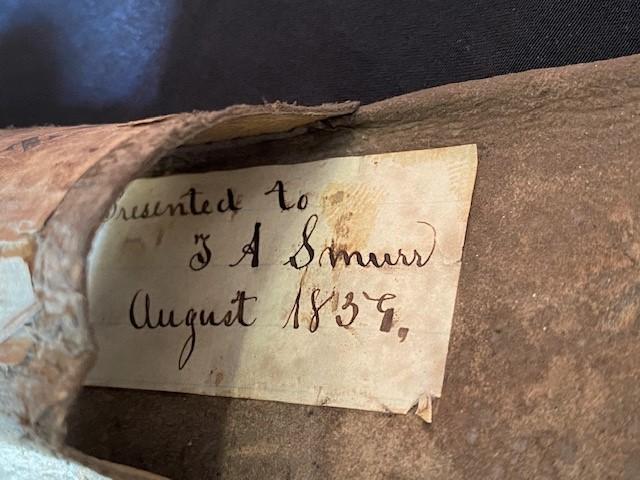 Presented to
J A Smurr
August 1837,